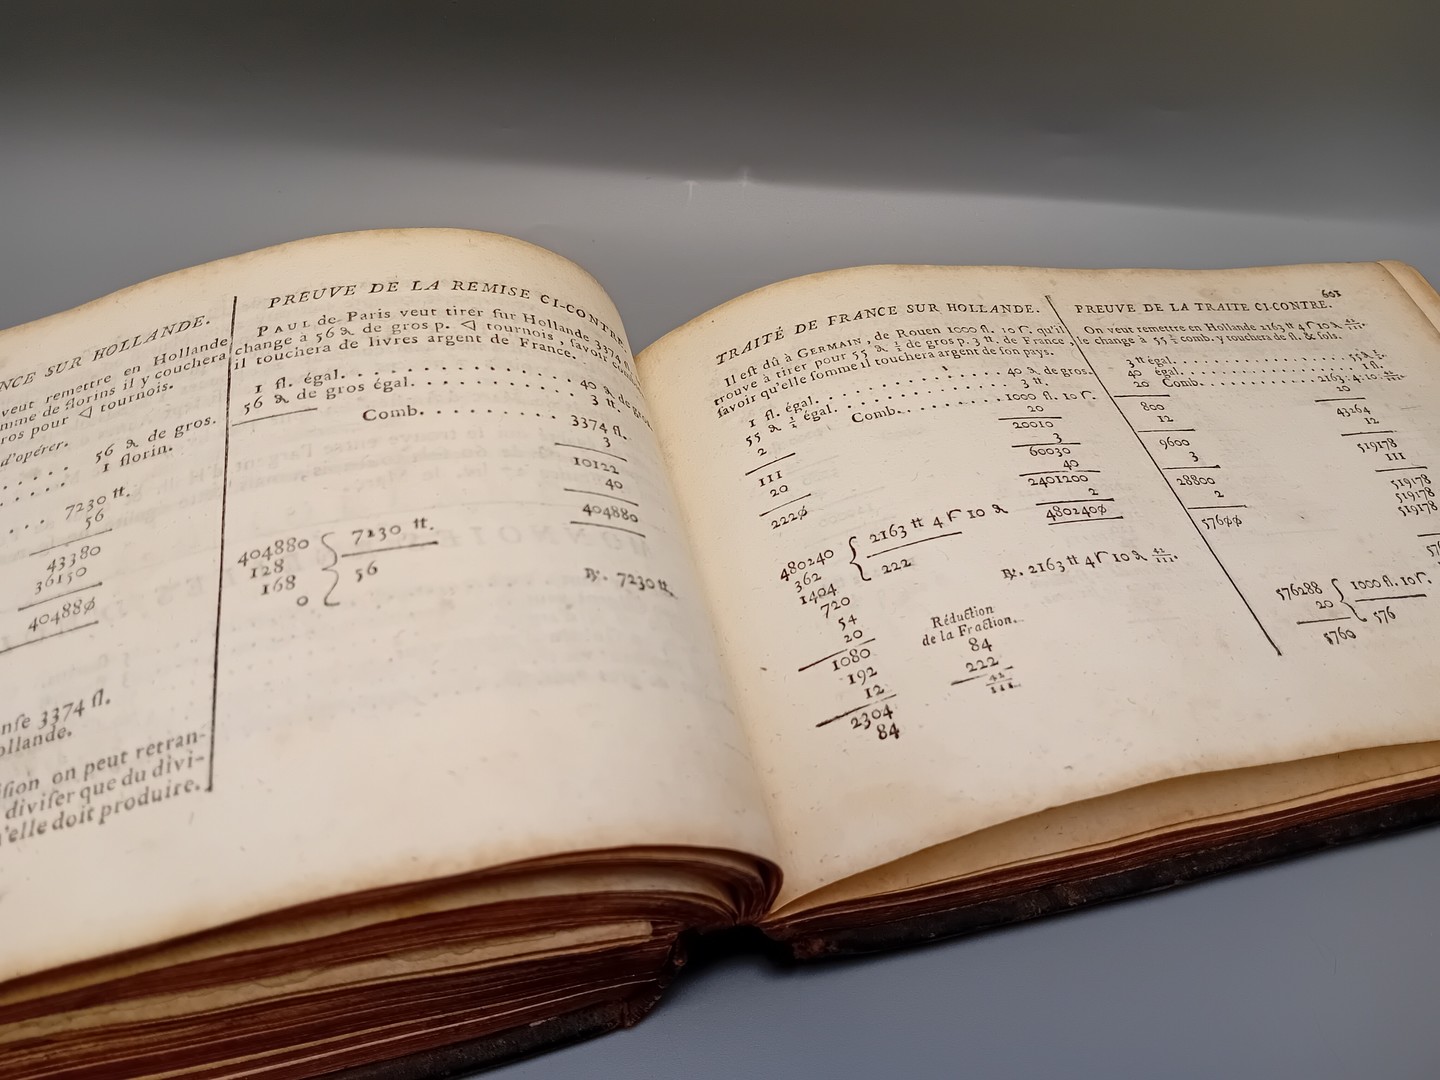 NCE SUR HOLLANDE.
veut remettre en Hollande
mme de florins il y touchera
ros pour ◁ tournois.
d'opérer.
. . . . 56 ₰ de gros.
. . . . . 1 florin.
. . . 7230 ₶.
56
43380
36150
404880
nſe 3374 fl.
ollande.
iſion on peut retran-
diviſer que du divi-
'elle doit produire.
PREUVE DE LA REMISE CI-CONTRE
PAUL de Paris veut tirer ſur Hollande 3374 fl.
change a 56 ₰ de gros p. ◁ tournois, ſavoir
il touchera de livres argent de France.
1 fl. égal. . . . . . . . . . . . . . 40 ₰ de gros
56 ₰ de gros égal. . . . . . . . . . . 3 ₶.
Comb. . . . . . . . . 3374 fl.
3
10122
40
404880
404880 { 7230 ₶.
128 56
168
0
℞. 7230 ₶.
601
TRAITÉ DE FRANCE SUR HOLLANDE.
Il eſt dû à GERMAIN, de Rouen 1000 fl. 10 ſ. qu'il
trouve à tirer pour 55 ₰ ½ de gros p. 3 ₶. de France,
ſavoir qu'elle ſomme il touchera argent de ſon pays.
1 fl. égal. . . . . . . . . . . . . . 40 ₰ de gros.
55 ₰ ½ égal. . . . . . . . . . . . . 3 ₶.
2 Comb. . . . . . . . . 1000 fl. 10 ſ.
111 20
20 20010
2220 3
60030
40
2401200
2
4802400
480240 { 2163 ₶ 4 ſ 10 ₰
362 222
1404
720
54
20
1080
192
12
2304
84
℞. 2163 ₶ 4 ſ 10 ₰
Réduction
de la Fraction.
84
222
PREUVE DE LA TRAITE CI-CONTRE.
On veut remettre en Hollande 2163 ₶ 4 ſ 10 ₰
le change à 55 ½ comb. y touchera de fl. & ſols.
3 ₶ égal. . . . . . . . . . . . . . 55 ₰ ½.
40 égal. . . . . . . . . . . . . . 1 fl.
20 Comb. . . . . . . . . . . 2163. 4. 10.
800 20
12 43264
9600 12
3 519178
28800 111
2 519178
57600 519178
519178
576288 { 1000 fl. 10 ſ.
20 576
5760